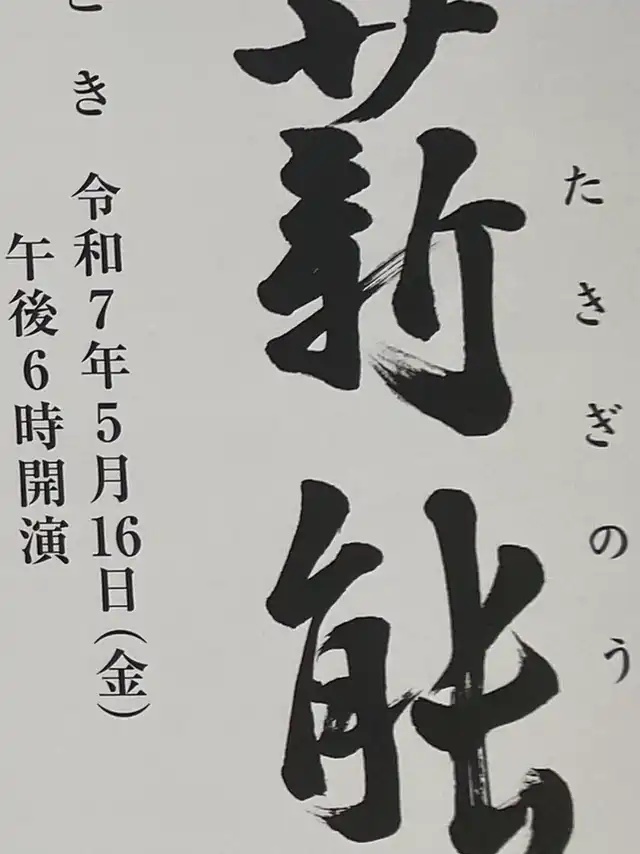 たきぎのう
薪能
とき 令和7年5月16日(金)
午後6時開演